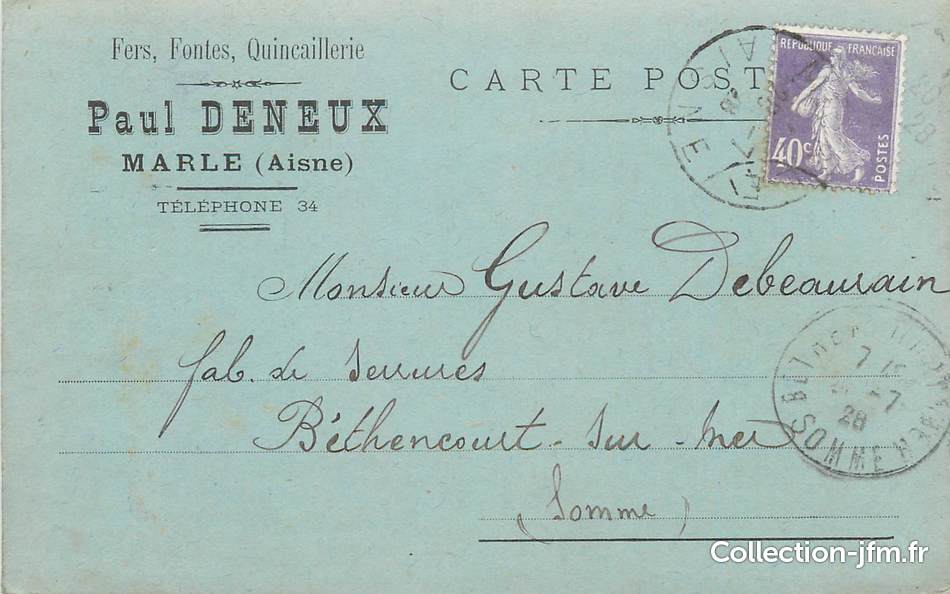 Fers, Fontes, Quincaillerie
Paul DENEUX
MARLE (Aisne)
TÉLÉPHONE 34
CARTE POST
RÉPUBLIQUE FRANÇAISE
40c
POSTES
AISNE
Monsieur Gustave Debeaurain
fab. de Serrures
Béthencourt-sur-Mer
(Somme)
7
28
SOMME
Collection-jfm.fr